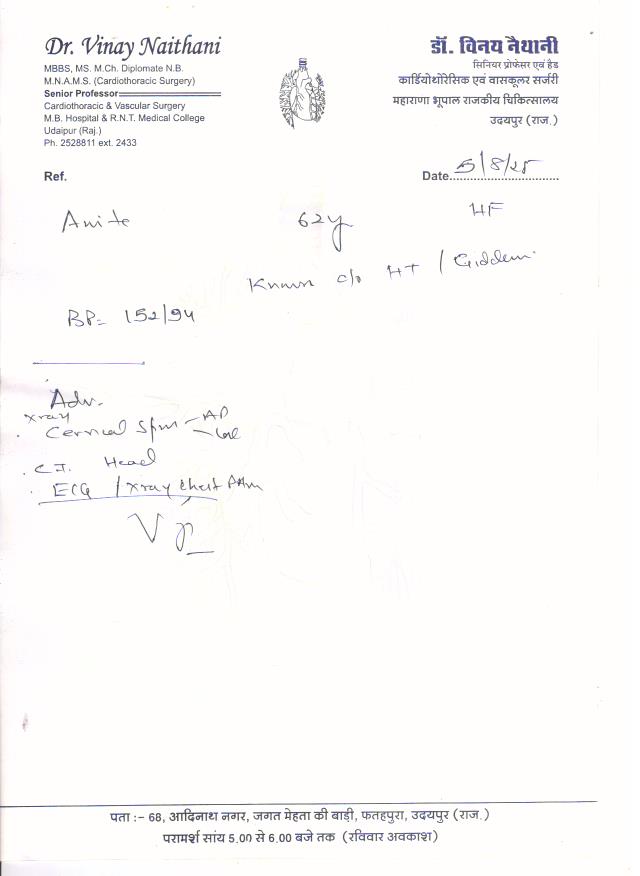 Dr. Vinay Naithani
MBBS, MS. M.Ch. Diplomate N.B.
M.N.A.M.S. (Cardiothoracic Surgery)
Senior Professor
Cardiothoracic & Vascular Surgery
M.B. Hospital & R.N.T. Medical College
Udaipur (Raj.)
Ph. 2528811 ext. 2433
डॉ. विनय नैथानी
सिनियर प्रोफेसर एवं हैड
कार्डियोथोरेसिक एवं वासकूलर सर्जरी
महाराणा भूपाल राजकीय चिकित्सालय
उदयपुर (राज.)
Ref.
Date 5/8/25
62y
Known c/o HT /
BP= 152/94
Adv.
Xray
Cervical Spine - AP
- Lat
C.T. Head
ECG / Xray Chest
पता :- 68, आदिनाथ नगर, जगत मेहता की बाड़ी, फतहपुरा, उदयपुर (राज.)
परामर्श सांय 5.00 से 6.00 बजे तक (रविवार अवकाश)